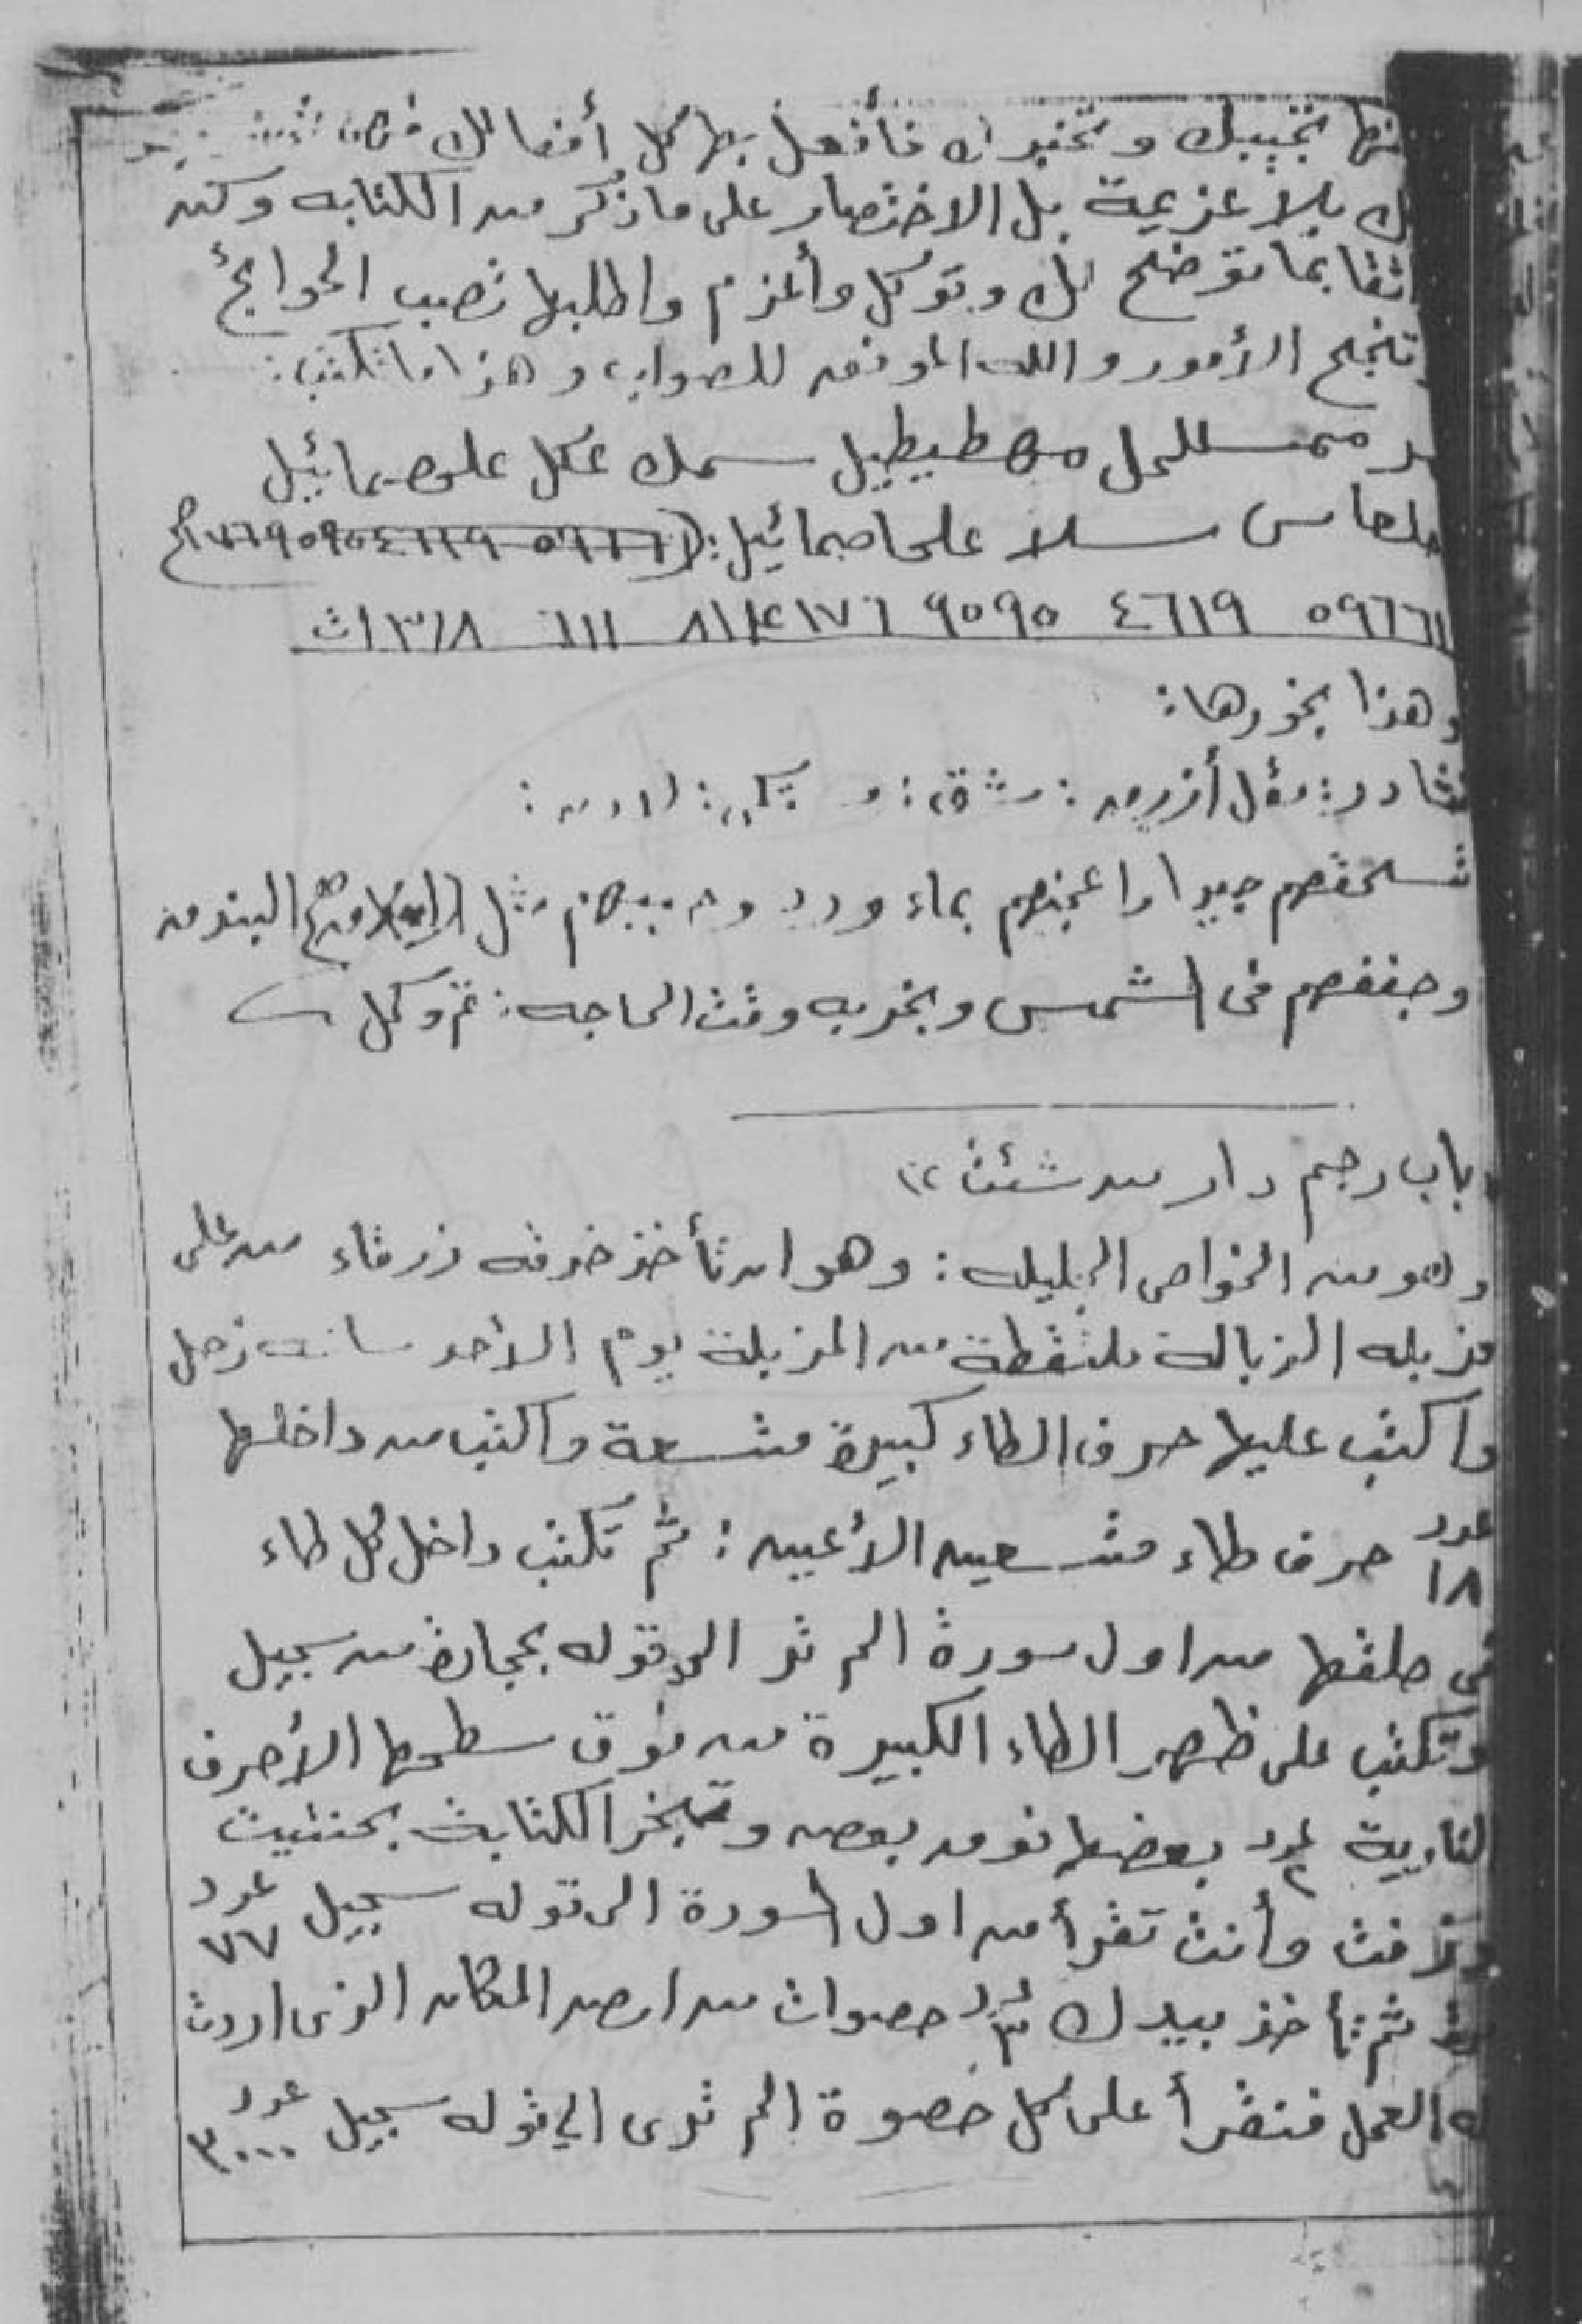 تجيبك وتخبرك فأفعل بها كل أفعالك
ك بلا عزيمة بل الاختصار على ما ذكر من الكتابه وكن
اثقا بما توضح لك وتوكل وأعزم واطلبها تصب الحوائج
تنجح الأمور والله الموفق للصواب وهذا ما تكتب:
مهطيطيل سمك عكل علوصمائيل
سلا علحاصمائيل:
٥٩٦٦١ ٤٦١٩ ٩٥٩٥ ٦١١
وهذا بخورها:
مقل أزرق:
تسحقهم جيدا واعجنهم بماء ورد وحببهم مثل البندق
وجففهم فى الشمس وبخر به وقت الحاجه: تم وكل
باب رجم دار من شئت
وهو من الخواص الجليله: وهو ان تأخذ خرقه زرقاء من على
مزبله الزباله ملتقطة من المزبلة يوم الأحد ساعه زحل
واكتب عليها حرف الطاء كبيرة متسعة واكتب من داخلها
عدد ١٨ حرف طاء متسعين الأعين: ثم تكتب داخل كل طاء
فى حلقها من اول سورة الم تر الى قوله بحجارة من سجيل
وتكتب على ظهر الطاء الكبيرة من فوق سطحها الأحرف
النارية عدد ٢ بعضها فوق بعض وتبخر الكتابة بحنتيت
وزفت وأنت تقرأ من اول السورة الى قوله سجيل عدد ٧٧
ثم تأخذ بيدك عدد ٣ حصوات من ارض المكان الذى اردت
له العمل فتقرأ على كل حصوة الم ترى الي قوله سجيل عدد ٣٠٠٠